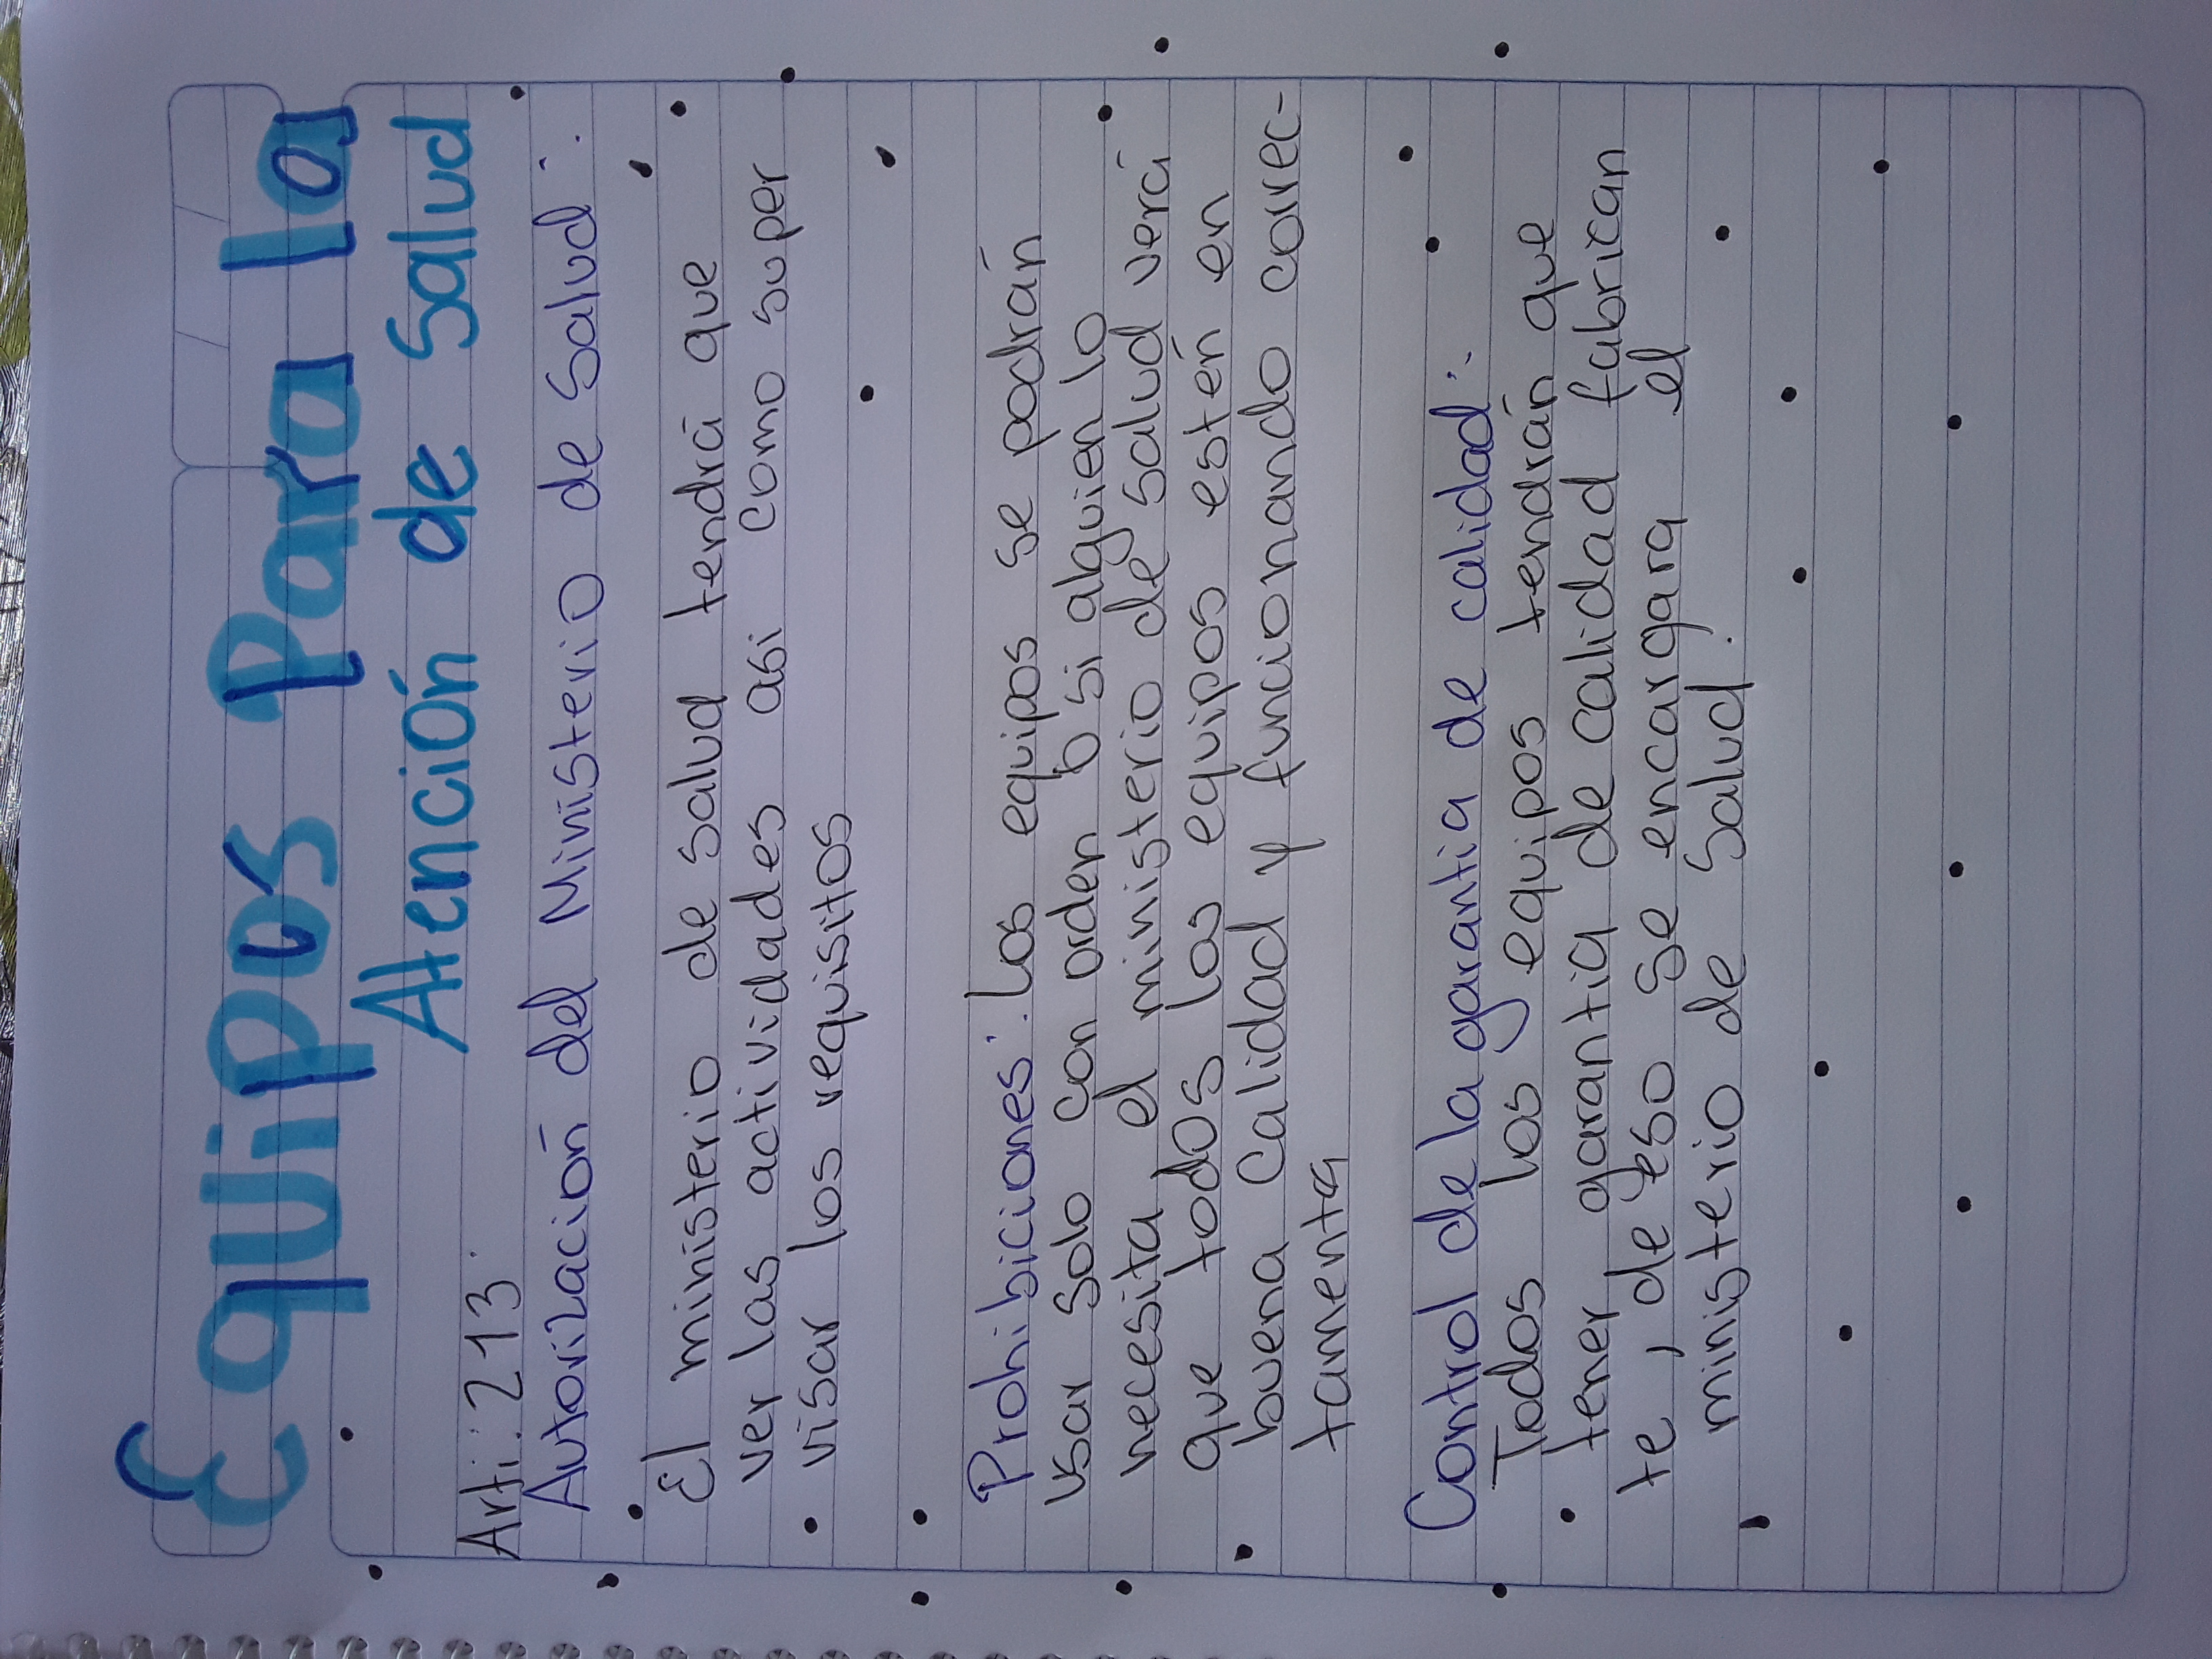 Equipos Para la
Atención de Salud
Arti: 213.
Autorización del Ministerio de Salud:
El ministerio de salud tendrá que
ver las actividades asi como super
visar los requisitos
Prohibiciones: los equipos se podrán
usar solo con orden o si alguien lo
necesita el ministerio de salud verá
que todos los equipos estén en
buena calidad y funcionando correc-
tamenta
Control de la garantia de calidad:
Todos los equipos tendrán que
tener garantia de calidad fabrican
te, de eso se encargara el
ministerio de Salud.